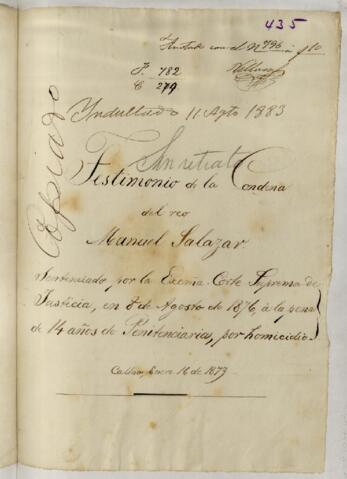 435
Anotado con el Nº 796 á f 10
F. 782
C 279
Indultado 11 Agto 1883
Copiado
Sin retrato
Testimonio de la Condena
del reo
Manuel Salazar
Sentenciado por la Exema. Corte Suprema de
Justicia, en 8 de Agosto de 1876, á la pena
de 14 años de Penitenciaria, por homicidio
Callao, Enero 16 de 1879